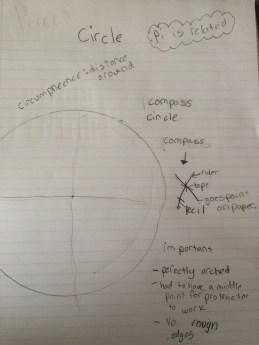 Circle
Pi is related
circumference: distance
around
compass
circle
compass
ruler
tape
goes point
on paper
important
- perfectly arched
- had to have a middle
point for protractor
to work
- No rough
edges